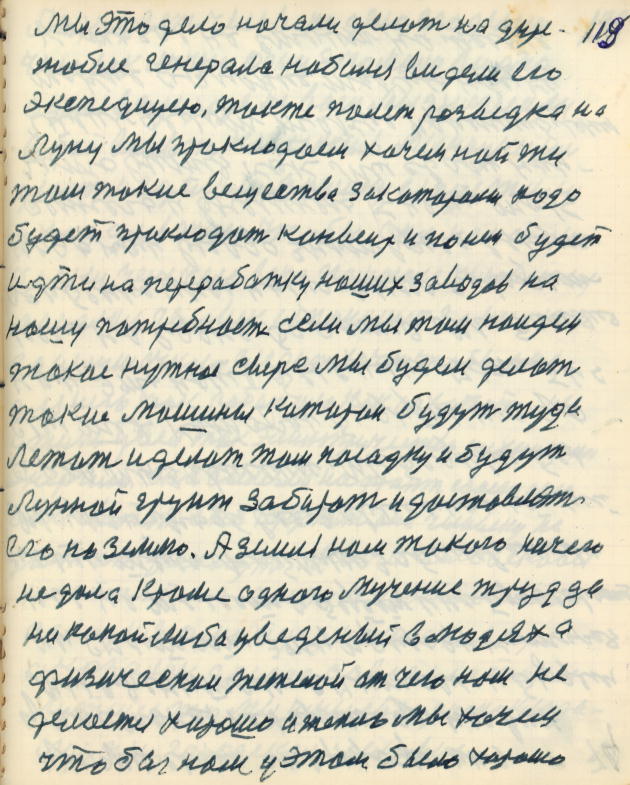 мы это дело начали делат на дири- 118
жобле генерала нобеля видели его
экспедицею, такте полет розведка на
Луну мы прокладоем хочем най ти
там такие вещества за каторами надо
будет прокладат конвеир и по нем будет
идти на переработку наших заводов на
нашу потребност если мы там найдем
такое нужное сыре мы будем делат
такие машины каторои будут туда
летат и делат там посадку и будут
лунной грунт забират и доставлят
его на землю. А земля нам такого нечего
не дала кроме одного мучение труд да
на какой либа введеный в людях а
физическои тяжолой от чего нам не
делается хорошо и тепло мы хочем
что бы нам у этом было хорошо